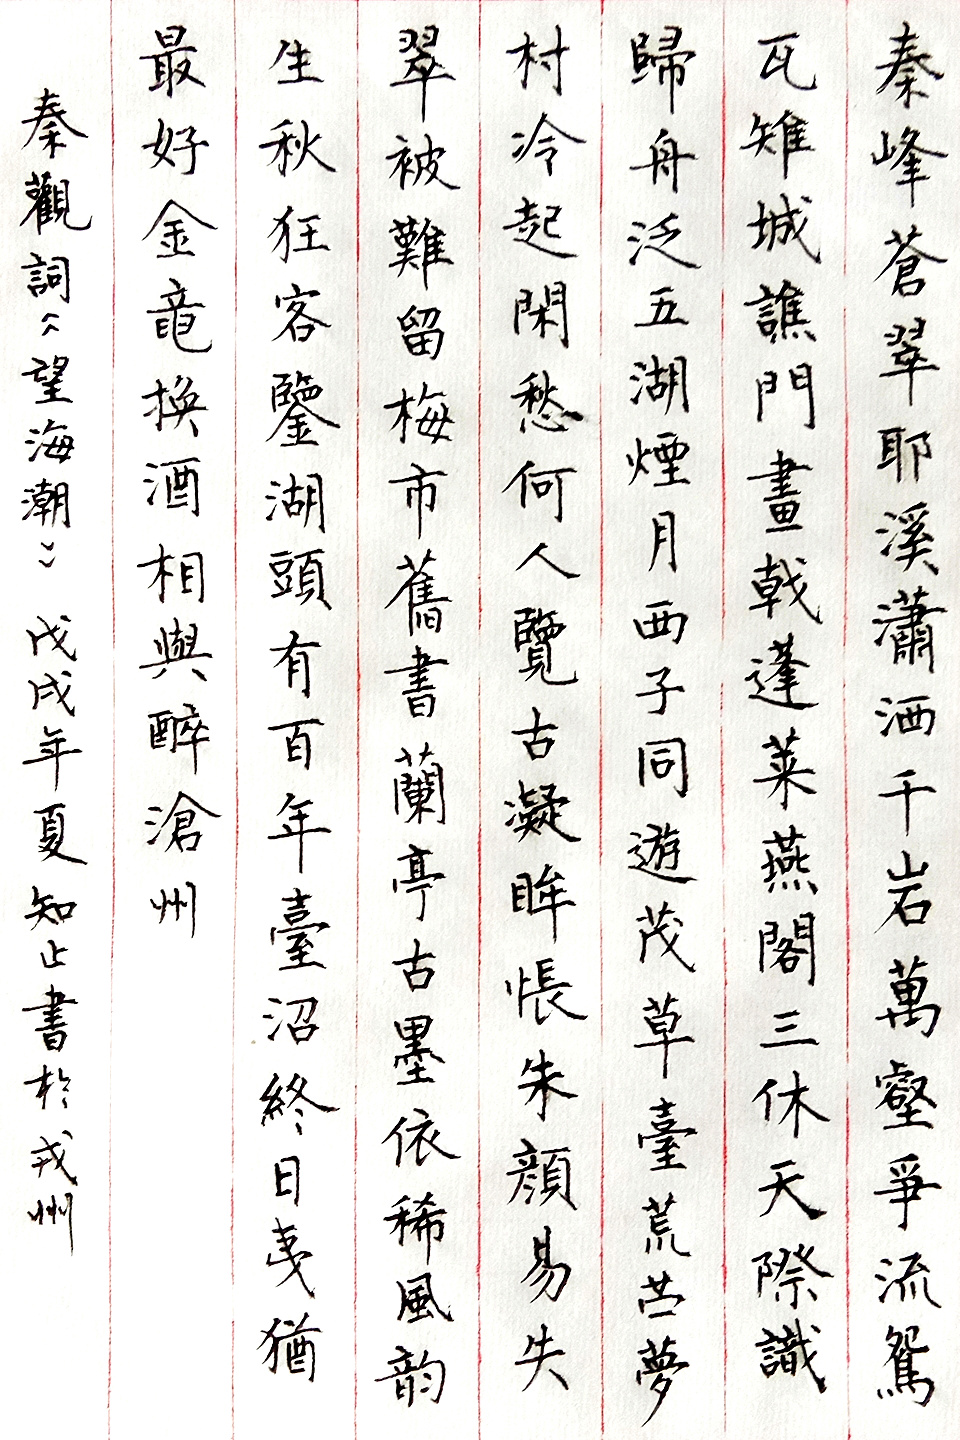 秦峰蒼翠耶溪瀟洒千岩萬壑爭流鴛
瓦雉城譙門畫戟蓬萊燕閣三休天際識
歸舟泛五湖煙月西子同遊茂草臺荒苎夢
村冷起閑愁何人覽古凝眸悵朱顔易失
翠被難留梅市舊書蘭亭古墨依稀風韵
生秋狂客鑒湖頭有百年臺沼終日夷猶
最好金龜換酒相與醉滄州
秦觀詞《望海潮》 戊戌年夏知止書於戎州